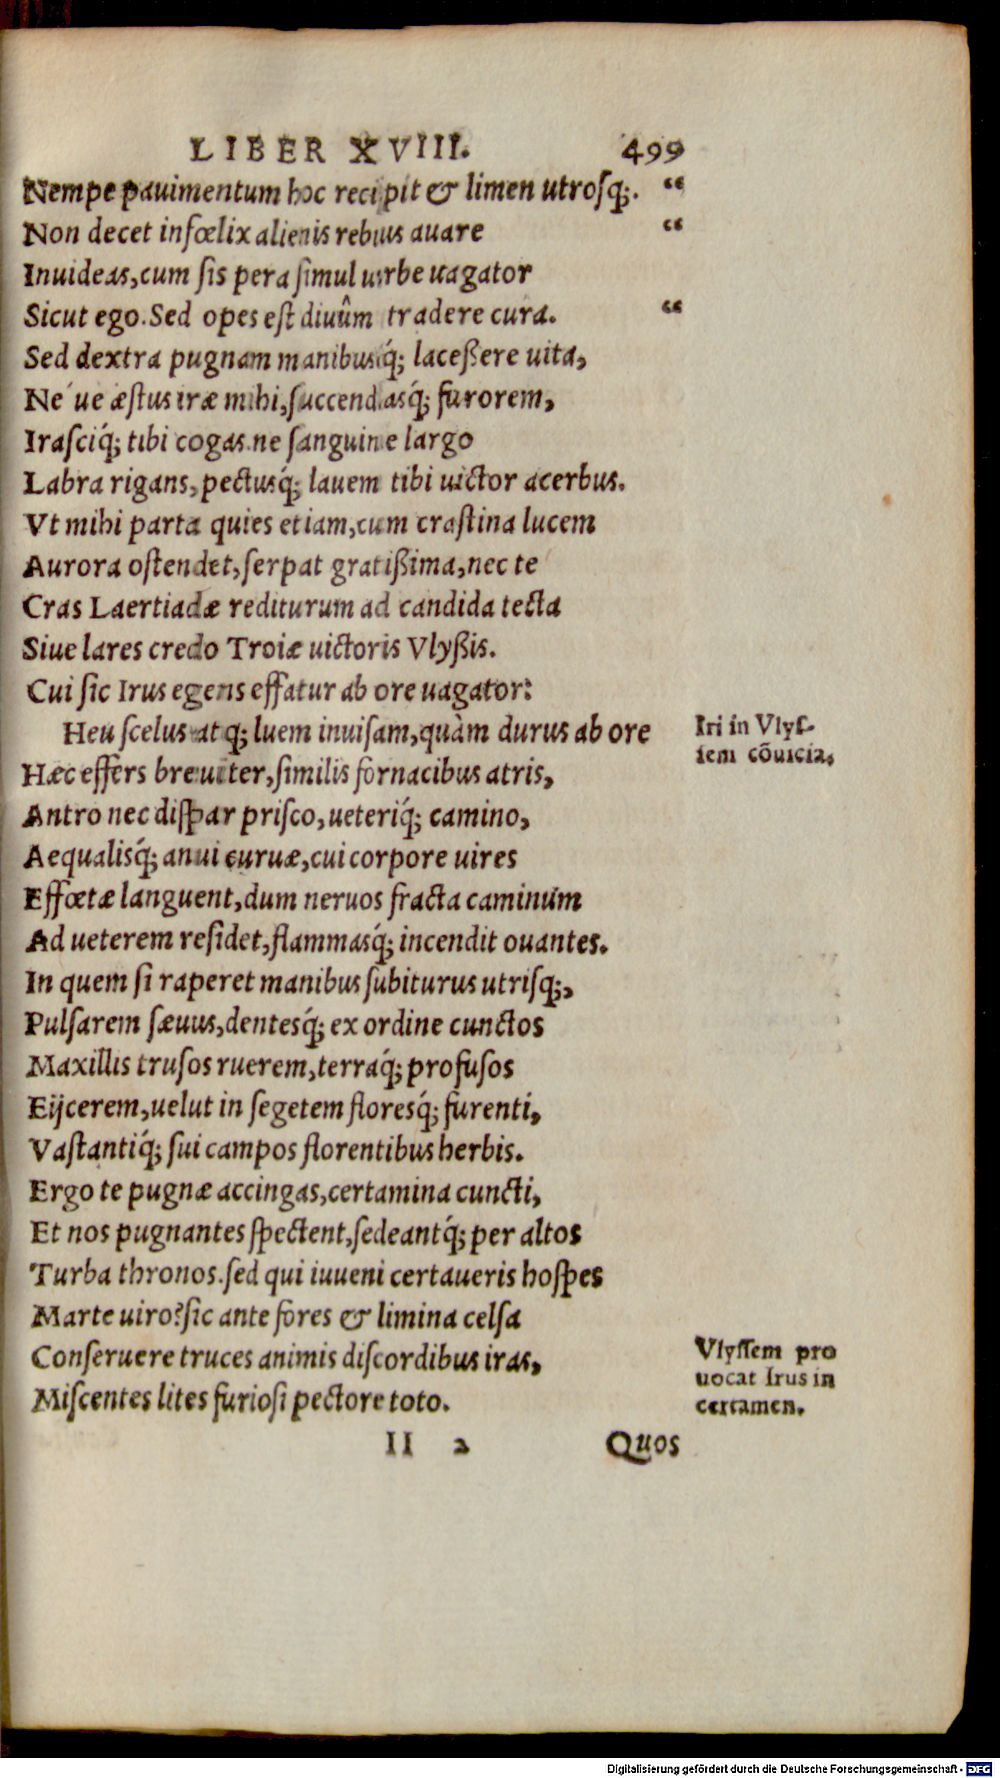 LIBER XVIII. 499
Nempe pauimentum hoc recipit & limen utrosq́;. “
Non decet infœlix alienis rebus auare “
Inuideas, cum ſis pera ſimul urbe uagator
Sicut ego. Sed opes eſt diuûm tradere cura. “
Sed dextra pugnam manibusq́; laceßere uita,
Né ue æſtus iræ mihi, ſuccendasq́; furorem,
Iraſciq́; tibi cogas. ne ſanguine largo
Labra rigans, pectusq́; lauem tibi uictor acerbus.
Vt mihi parta quies etiam, cum craſtina lucem
Aurora oſtendet, ſerpat gratißima, nec te
Cras Laertiadæ rediturum ad candida tecta
Siue lares credo Troiæ uictoris Vlyßis.
Cui ſic Irus egens effatur ab ore uagator:
Heu ſcelus atq; luem inuiſam, quàm durus ab ore
Iri in Vlyſ-
ſem cõuicia.
Hæc effers breuiter, ſimilis fornacibus atris,
Antro nec diſpar priſco, ueteriq́; camino,
Aequalisq́; anui curuæ, cui corpore uires
Effœtæ languent, dum neruos fracta caminum
Ad ueterem reſidet, flammasq́; incendit ouantes.
In quem ſi raperet manibus ſubiturus utriſq;,
Pulſarem ſæuus, dentesq́; ex ordine cunctos
Maxillis truſos ruerem, terraq́; profuſos
Eijcerem, uelut in ſegetem floresq́; furenti,
Vaſtantiq́; ſui campos florentibus herbis.
Ergo te pugnæ accingas, certamina cuncti,
Et nos pugnantes ſpectent, ſedeantq́; per altos
Turba thronos. ſed qui iuueni certaueris hoſpes
Marte uiro? ſic ante fores & limina celſa
Conſeruere truces animis diſcordibus iras,
Miſcentes lites furioſi pectore toto.
Vlyſſem pro
uocat Irus in
certamen.
II 2 Quos
Digitalisierung gefördert durch die Deutsche Forschungsgemeinschaft - DFG